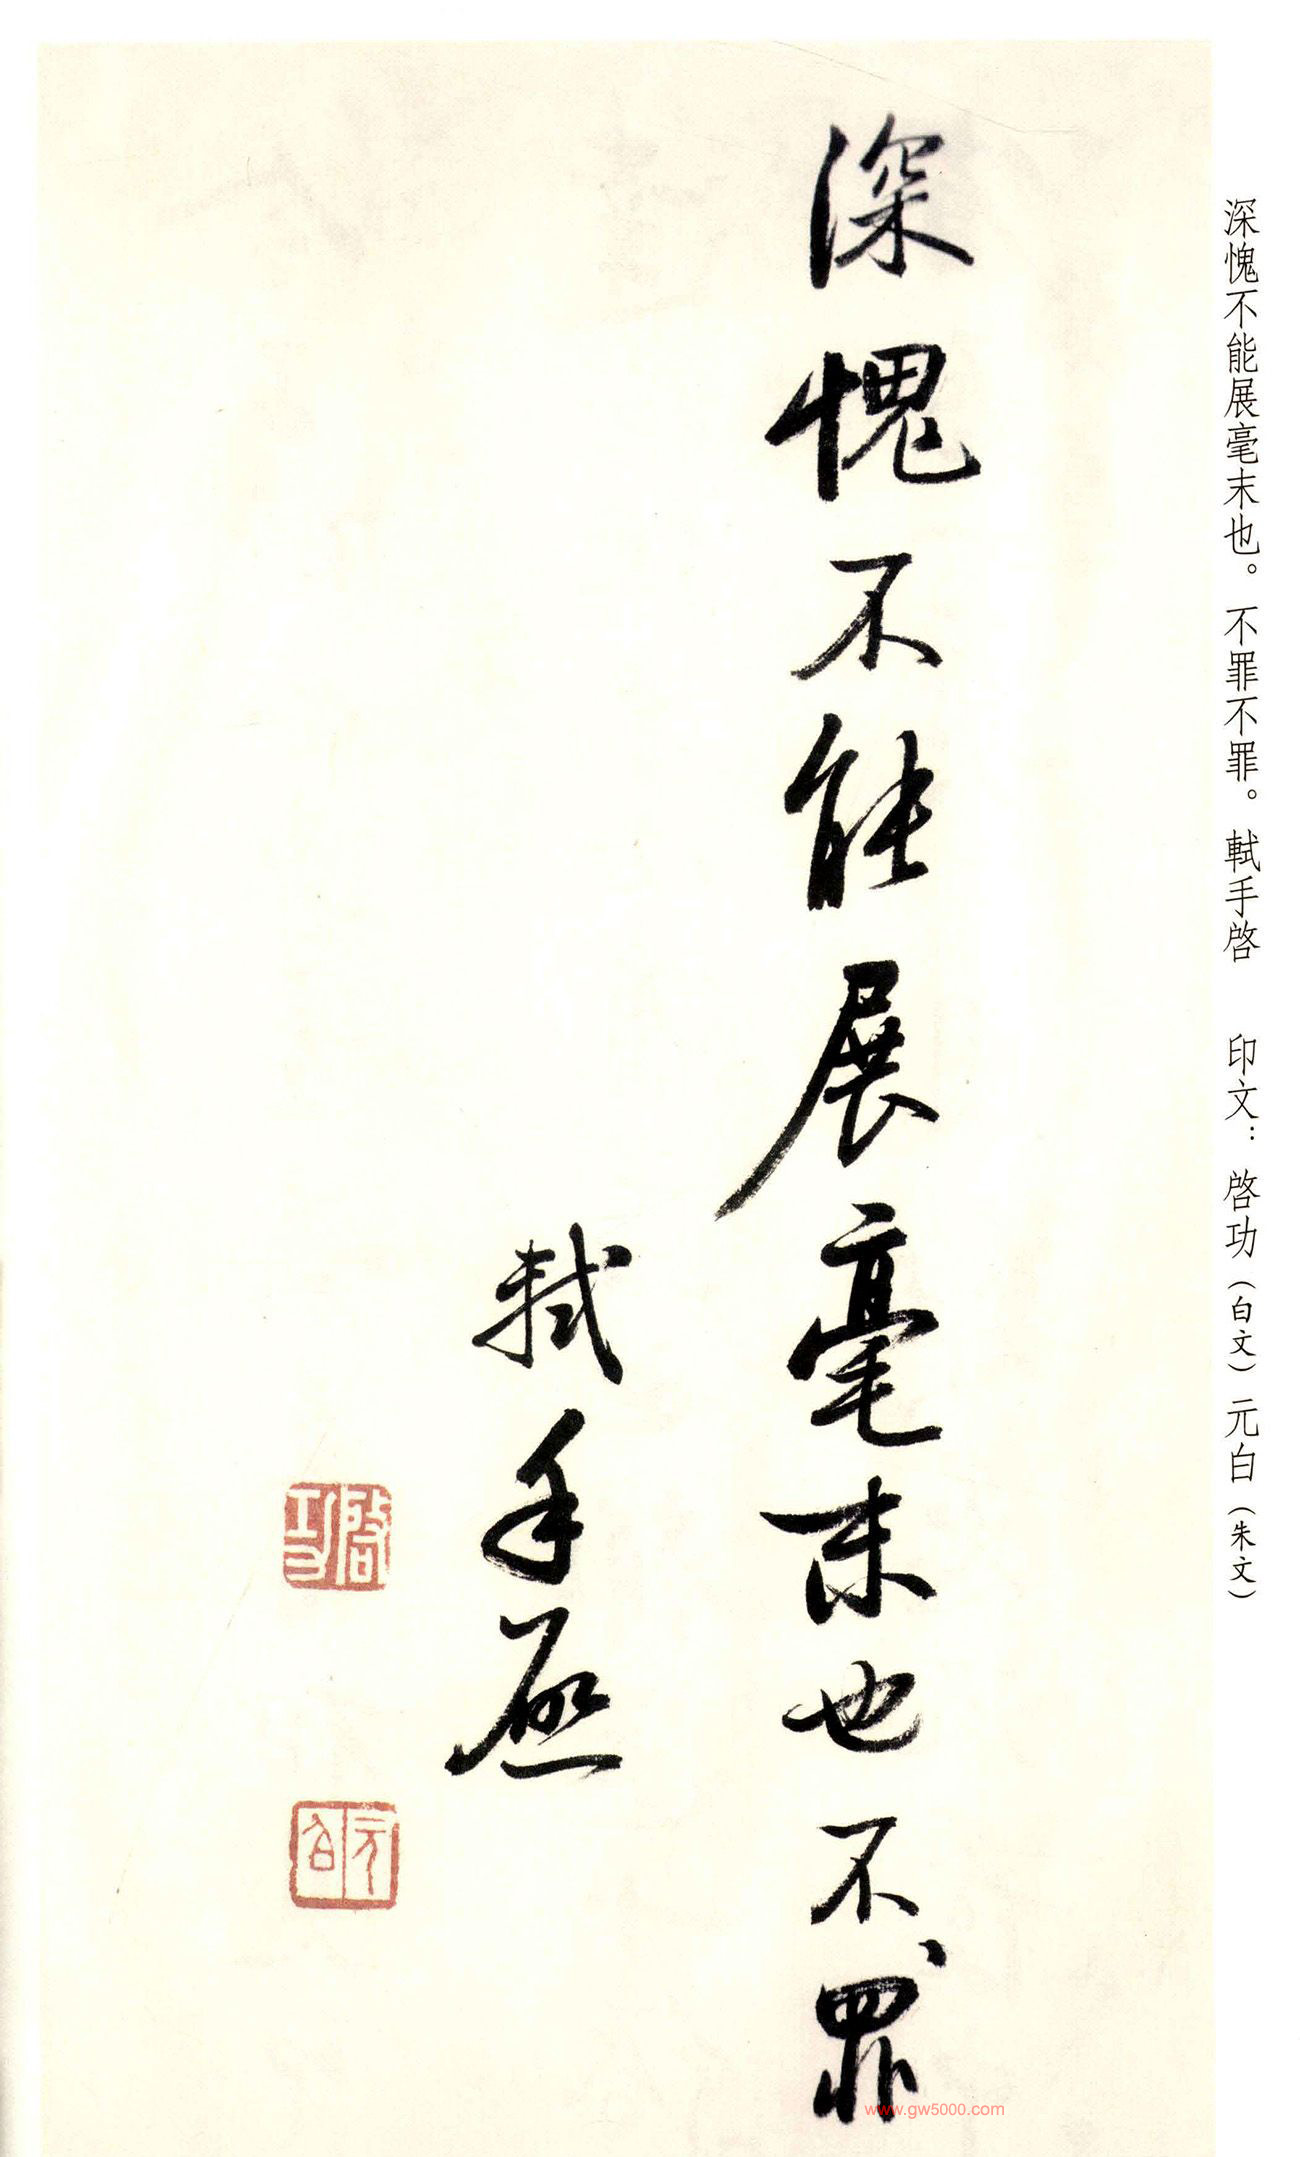 深愧不能展毫末也。不罪不罪。軾手啓　印文：啓功（白文）元白（朱文）
深愧不能展毫末也不〻罪
軾手啟
啓功
元白
www.gw5000.com